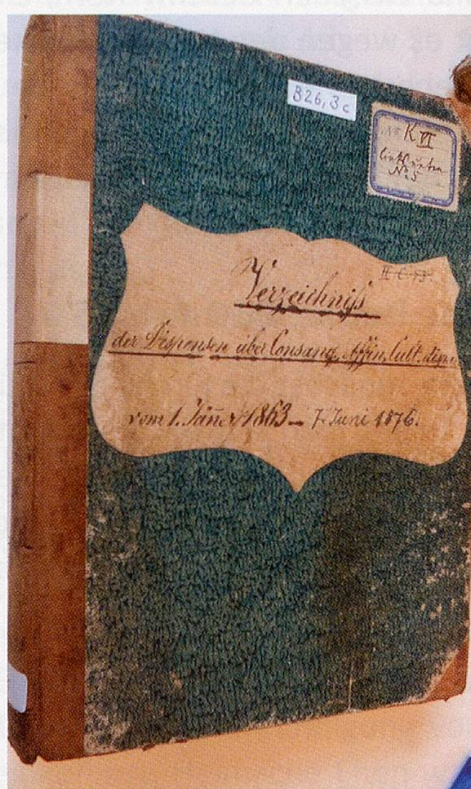 B26,3c
K VI
links unten
No 5
Verzeichniß
der Dispensen über Consang. Affin. Cult. disp.
vom 1. Jäner 1863 – 7. Juni 1876.